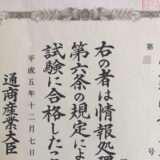 第
右の者は情報処理
第六条の規定によ
試験に合格したこ
平成五年十二月七日
通商産業大臣